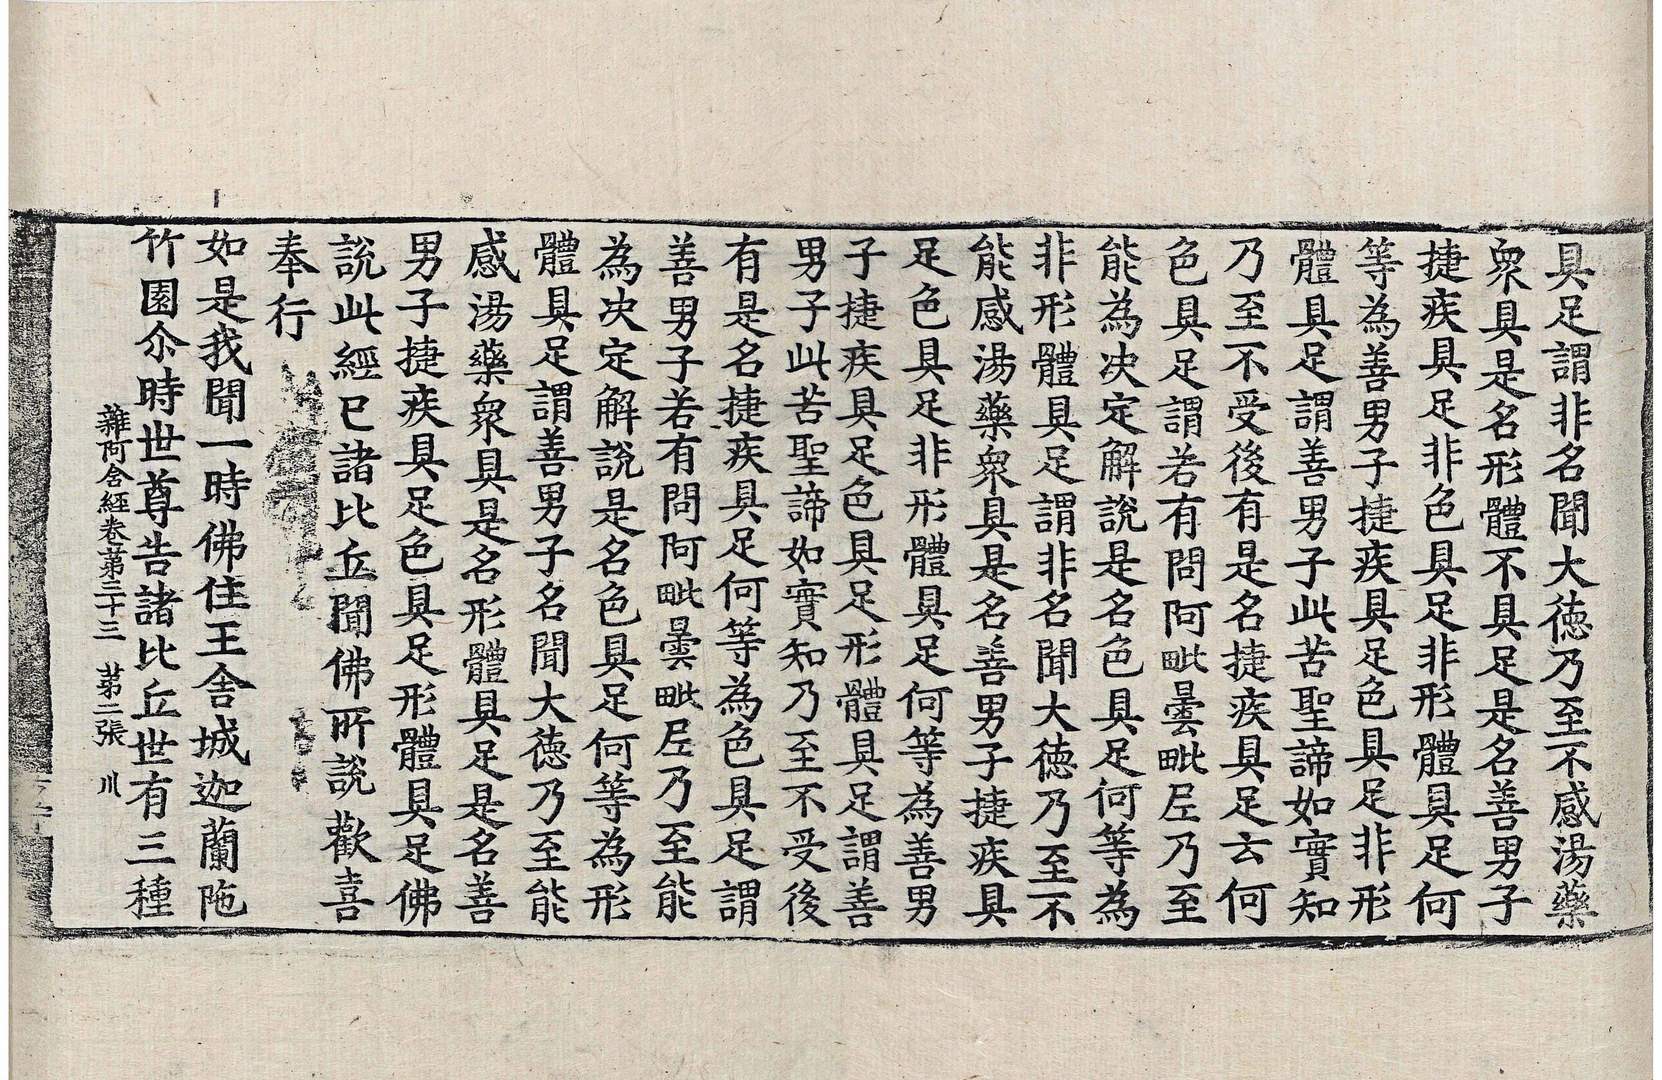 具足謂非名聞大徳乃至不感湯藥
衆具是名形體不具足是名善男子
捷疾具足非色具足非形體具足何
等為善男子捷疾具足色具足非形
體具足謂善男子此苦聖諦如實知
乃至不受後有是名捷疾具足云何
色具足謂若有問阿毗曇毗尼乃至
能為决定解說是名色具足何等為
非形體具足謂非名聞大徳乃至不
能感湯藥衆具是名善男子捷疾具
足色具足非形體具足何等為善男
子捷疾具足色具足形體具足謂善
男子此苦聖諦如實知乃至不受後
有是名捷疾具足何等為色具足謂
善男子若有問阿毗曇毗尼乃至能
為决定解說是名色具足何等為形
體具足謂善男子名聞大徳乃至能
感湯藥衆具是名形體具足是名善
男子捷疾具足色具足形體具足佛
說此經已諸比丘聞佛所說歡喜
奉行
如是我聞一時佛住王舍城迦蘭陁
竹園尒時世尊告諸比丘世有三種
雜阿含經卷第三十三　第二張　川